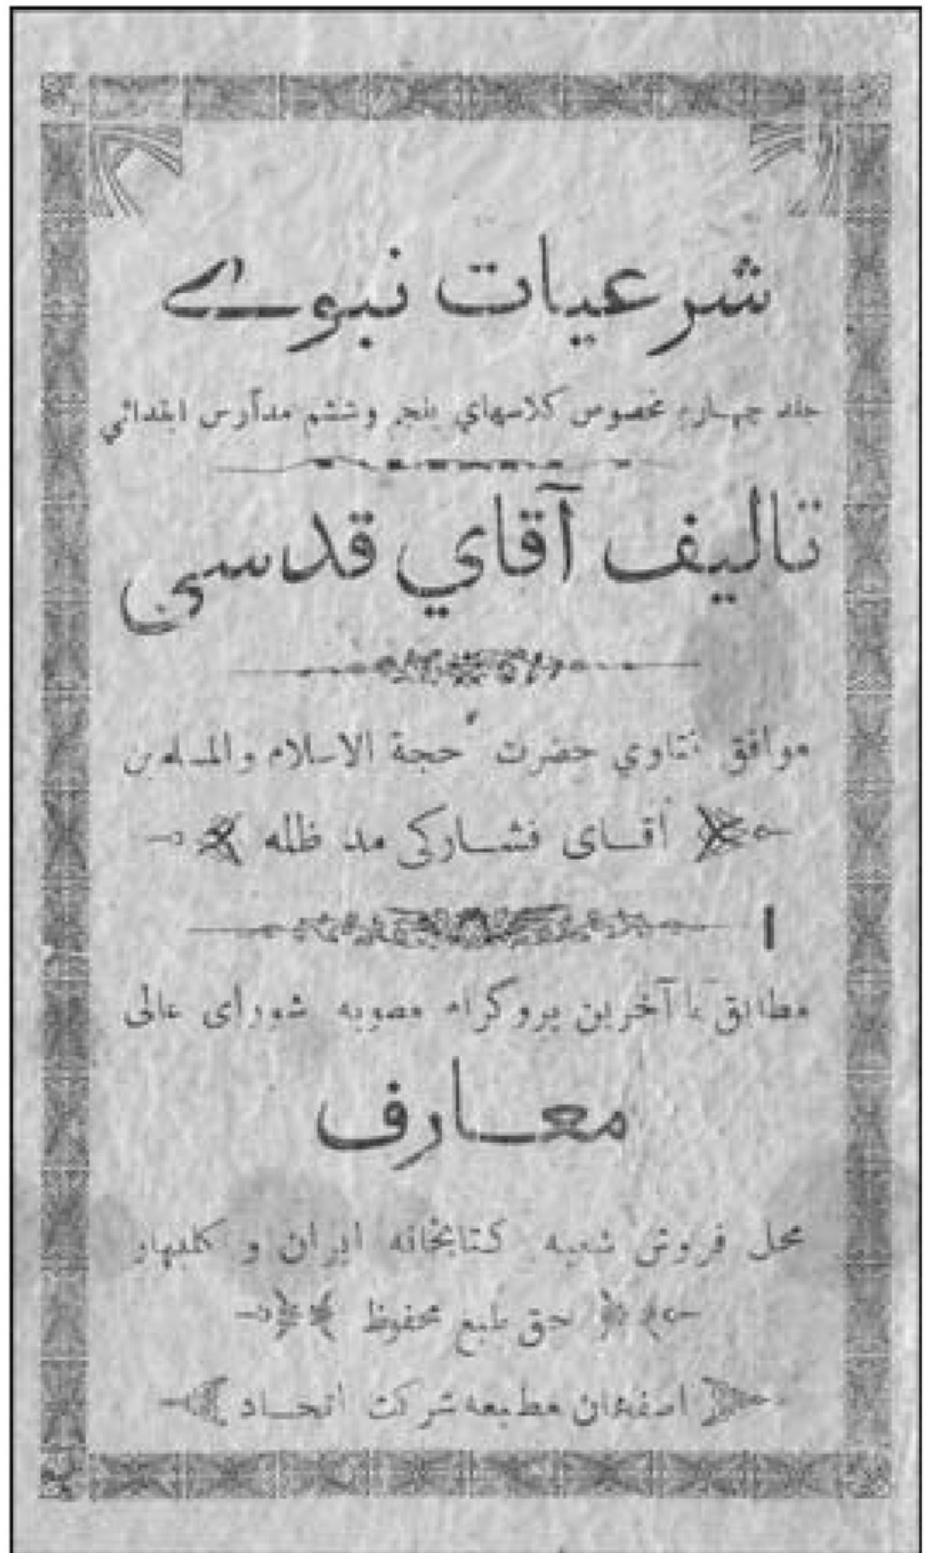 شرعیات نبوے
جلد چهارم مخصوص کلاسهاي پنجم وششم مدارس ابتدائي
تالیف آقاي قدسی
موافق فتاوي حضرت حجة الاسلام والمسلمین
آقای فشارکی مد ظله
مطابق با آخرین پروگرام مصوبه شورای عالی
معارف
محل فروش شعبه کتابخانه ایران و گلبهار
حق طبع محفوظ
اصفهان مطبعه شرکت اتحاد